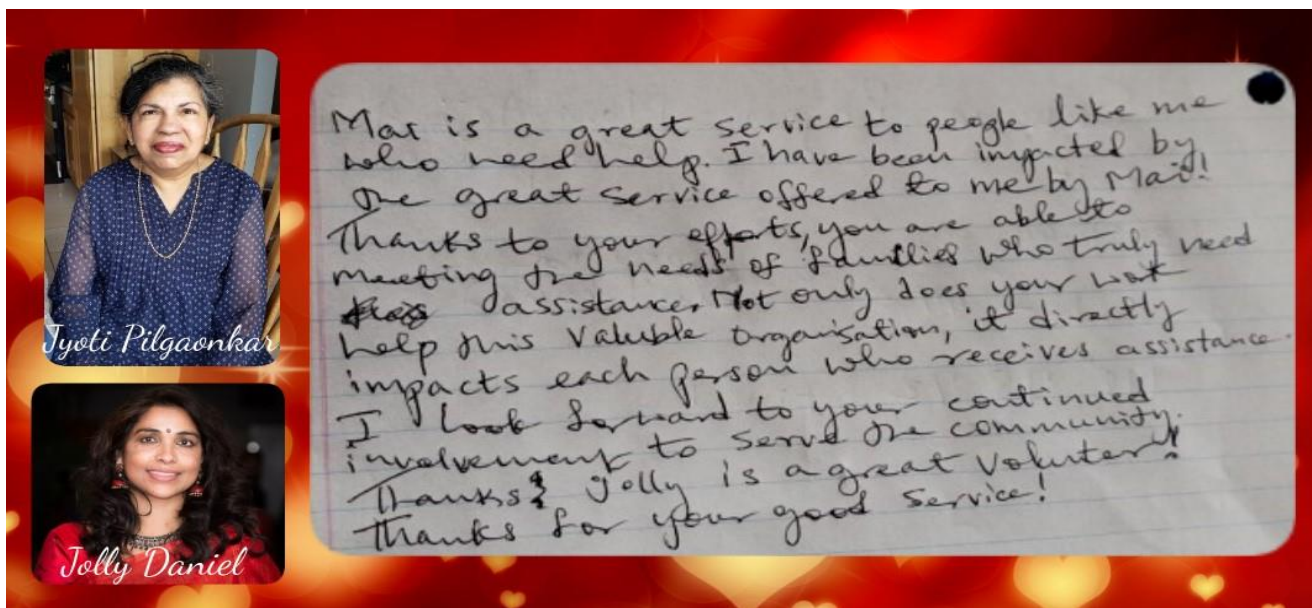 Jyoti Pilgaonkar
Jolly Daniel
Mai is a great service to people like me
who need help. I have been impacted by
the great service offered to me by Mai!
Thanks to your efforts, you are able to
meeting the needs of families who truly need
assistance. Not only does your work
help this Valuble Organisation, it directly
impacts each person who receives assistance.
I look forward to your continued
involvement to serve the community.
Thanks! Jolly is a great Voluter!
Thanks for your good service!